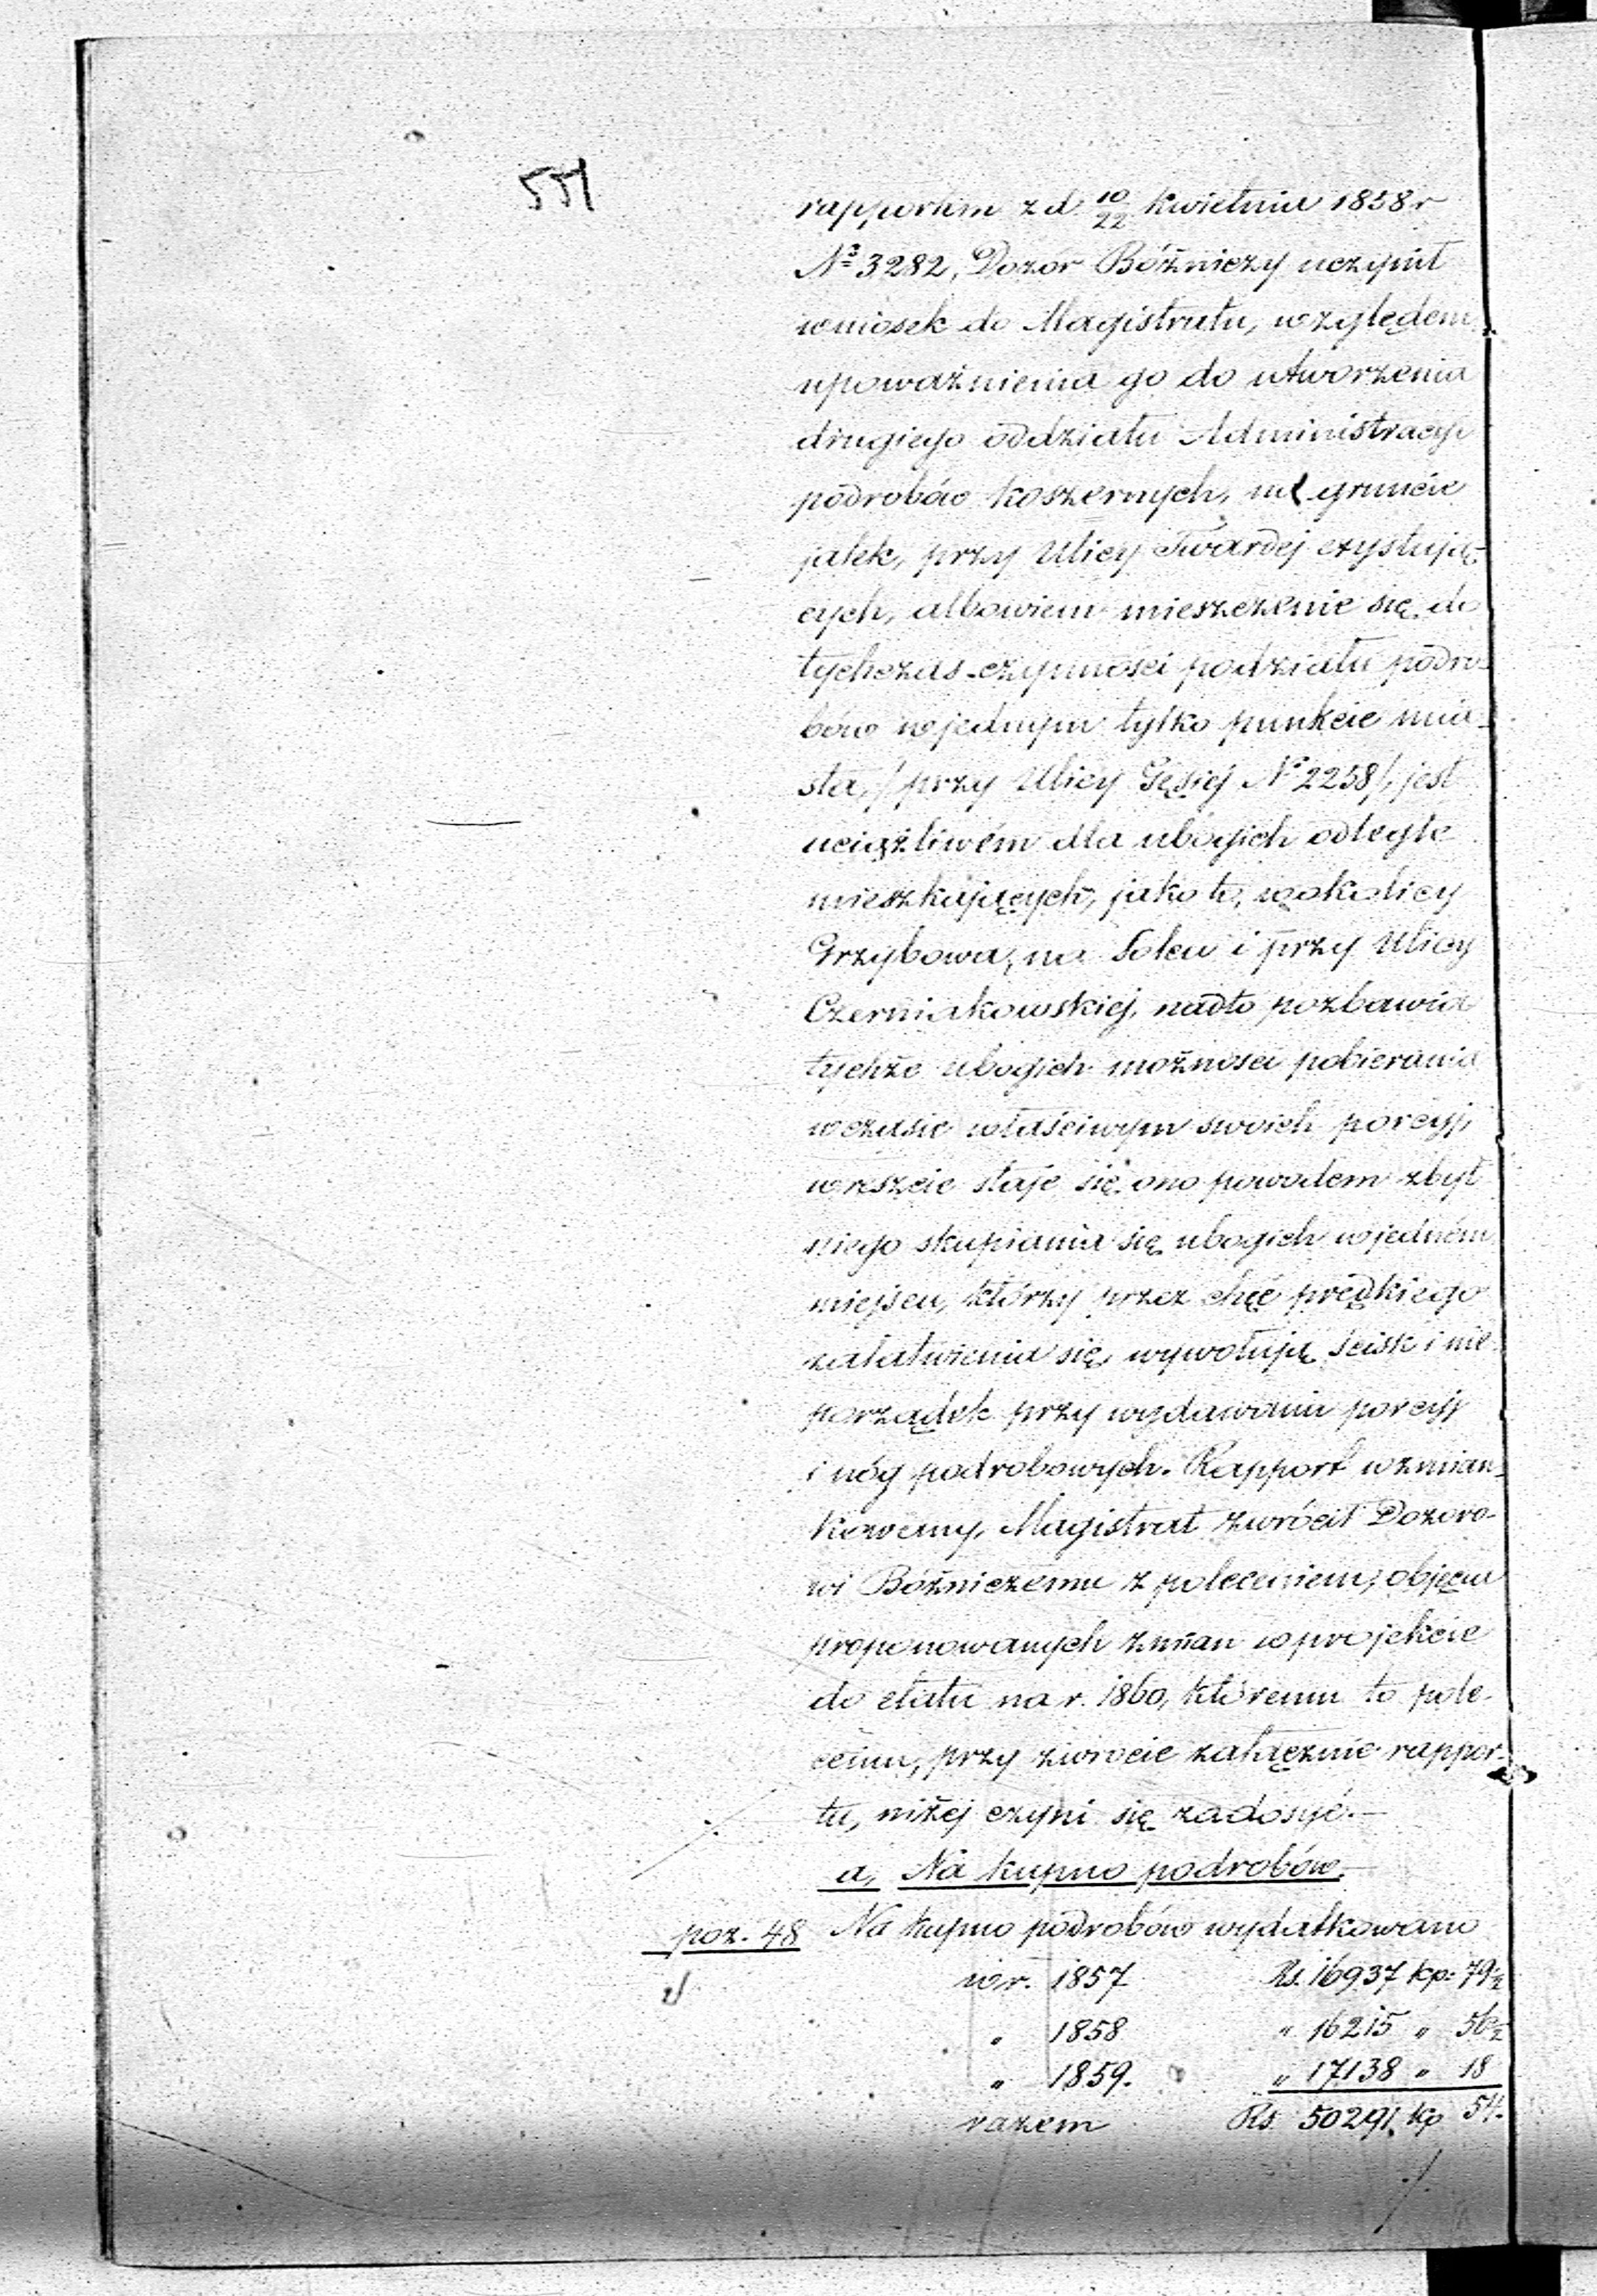 554
rapportem z d. 10/22 Kwietnia 1858 r
Nº 3282, Dozór Bóżniczy uczynił
wniosek do Magistratu, względem
upoważnienia go do utworzenia
drugiego oddziału Administracyi
podrobów koszernych, na gruncie
jatek, przy Ulicy Twardej exystują-
cych, albowiem mieszczenie się do
tychczas czynności podziału podro-
bów w jednym tylko punkcie mia-
sta, / przy Ulicy Gęsiej Nº 2258 /, jest
uciążliwém dla ubogich odlegle
mieszkających, jako to, w okolicy
Grzybowa, na Solcu i przy Ulicy
Czerniakowskiej, nadto pozbawia
tychże ubogich możności pobierania
w czasie właściwym swoich porcyj,
wreszcie staje się ono powodem zbyt
niego skupiania się ubogich w jedném
miejscu, którzy przez chęć prędkiego
załatwienia się, wywołują ścisk i nie
porządek przy wydawaniu porcyj
i nóg podrobowych. Rapport wzmian-
kowany, Magistrat zwrócił Dozoro-
wi Bóżniczemu z poleceniem, objęcia
proponowanych zmian w projekcie
do etatu na r. 1860, któremu to pole-
ceniu, przy zwrocie załącznie rappor-
tu, niżej czyni się zadosyć.—
a, Na kupno podrobów.—
poz. 48 Na kupno podrobów wydatkowano
w r. 1857 Rs. 16937 kp: 79½
" 1858 " 16215 " 56½
" 1859. " 17138 " 18
razem Rs 50291. kp 54.